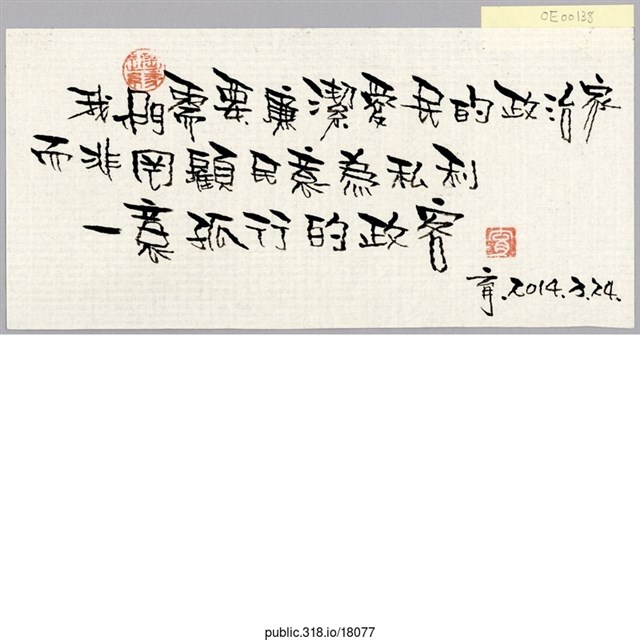 OE00138
我們需要廉潔愛民的政治家
而非罔顧民意為私利
一意孤行的政客
育.2014.3.24.
public.318.io/18077